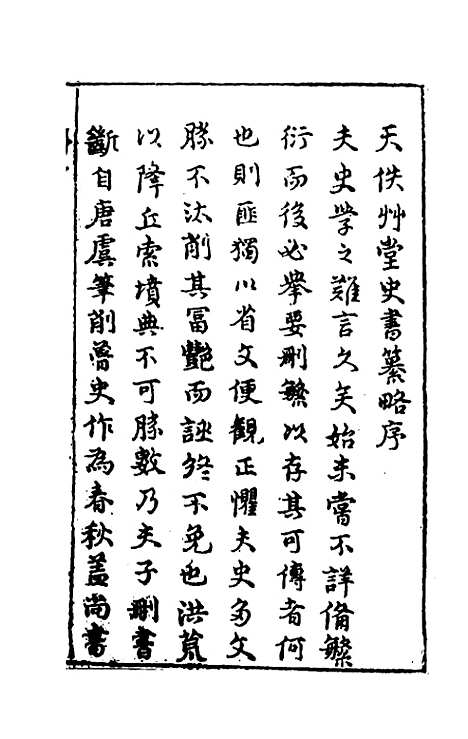 天佚艸堂史書纂略序
夫史學之難言久矣始未嘗不詳備繁
衍而後必舉要刪繁以存其可傳者何
也則匪獨以省文便觀正懼夫史多文
勝不汰削其冨艷而誣終不免也洪荒
以降丘索墳典不可勝數乃夫子刪書
斷自唐虞筆削魯史作為春秋盖尚書